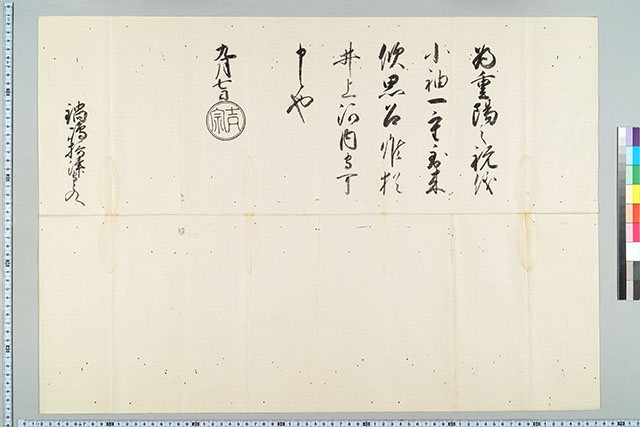 為重陽之祝儀
小袖一重到来
欣思召候猶
井上河内守可
申也
九月七日
吉宗
鍋嶋とのへ